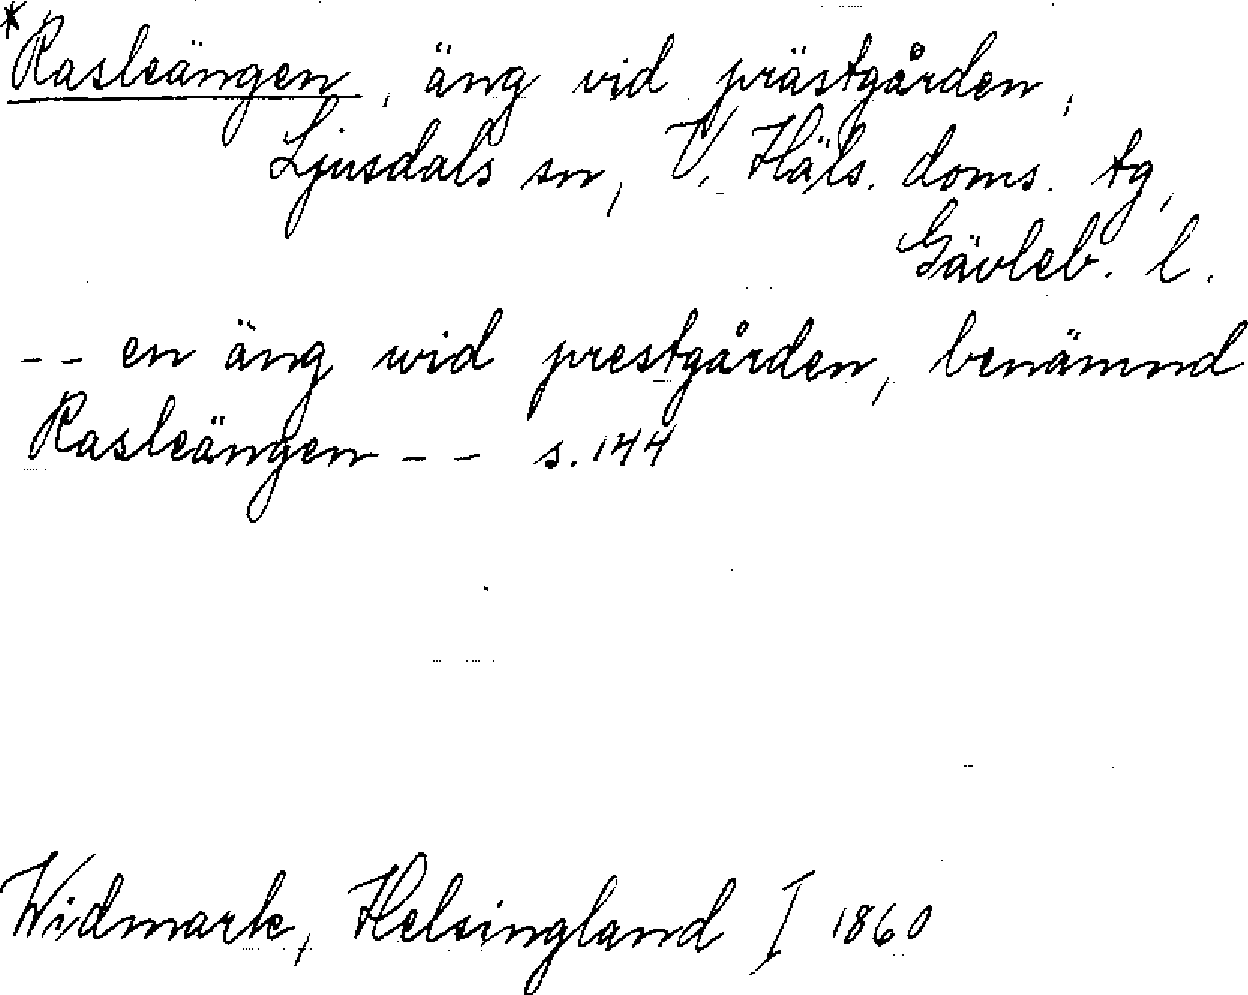 *Rasleängen, äng vid prästgården,
Ljusdals sn, V. Häls. doms. tg,
Gävleb. l.
-- en äng wid prestgården, benämnd
Rasleängen -- s. 144
Widmark, Helsingland I 1860